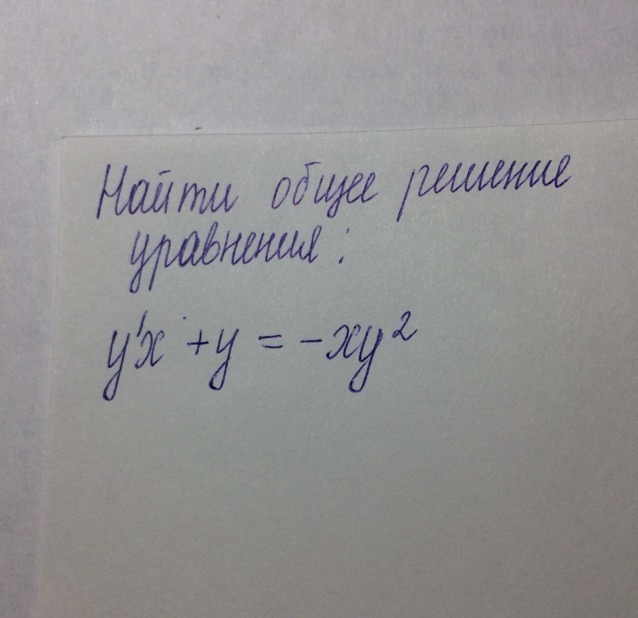 Найти общее решение
уравнения:
y'x + y = -xy²